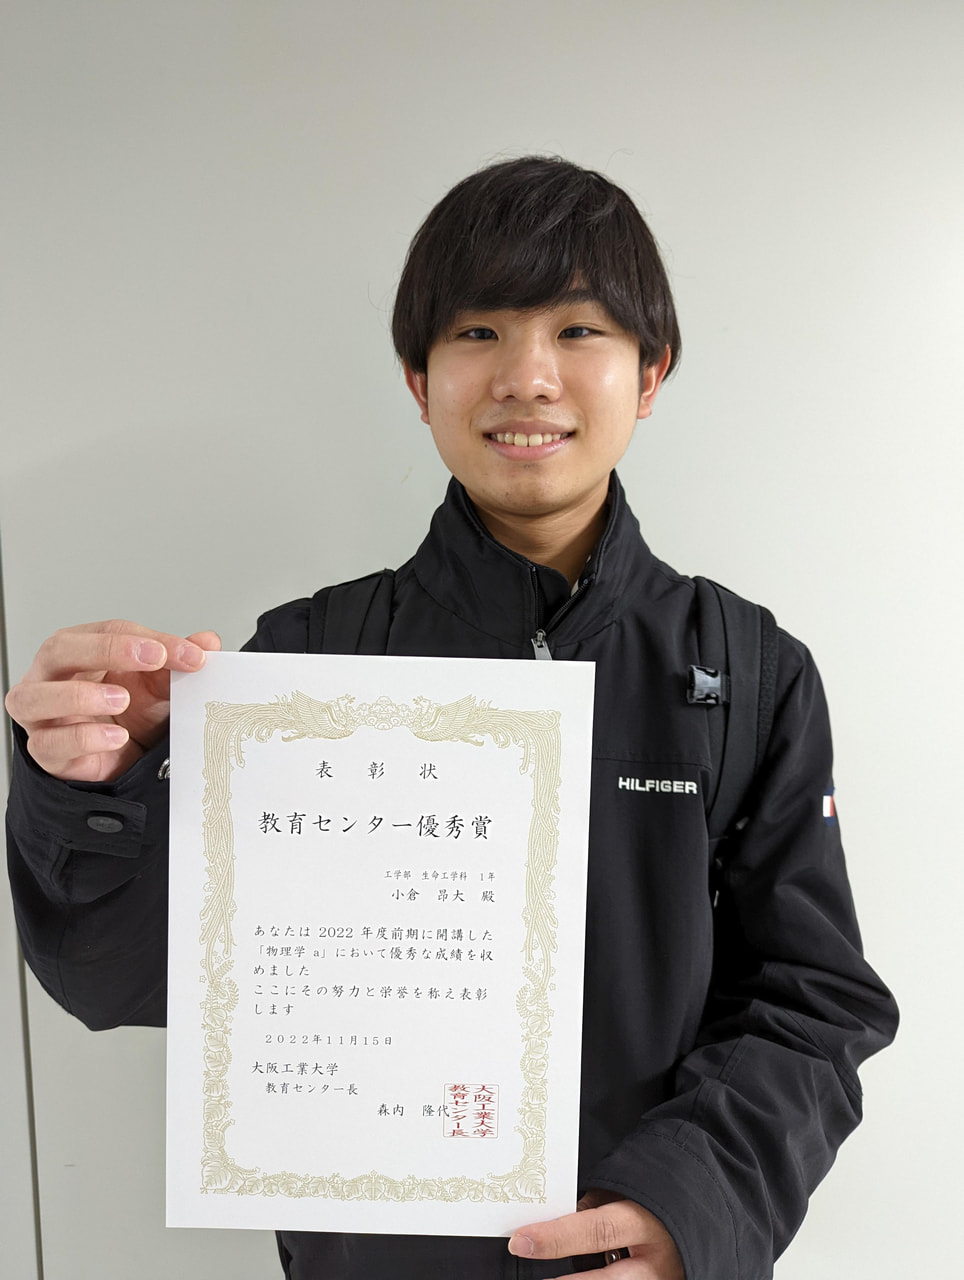 表彰状
教育センター優秀賞
工学部 生命工学科 1年
小倉 昂大 殿
あなたは 2022 年度前期に開講した
「物理学 a」において優秀な成績を収
めました
ここにその努力と栄誉を称え表彰
します
2022年11月15日
大阪工業大学
教育センター長
森内 隆代
大阪工業大学
教育センター長
HILFIGER